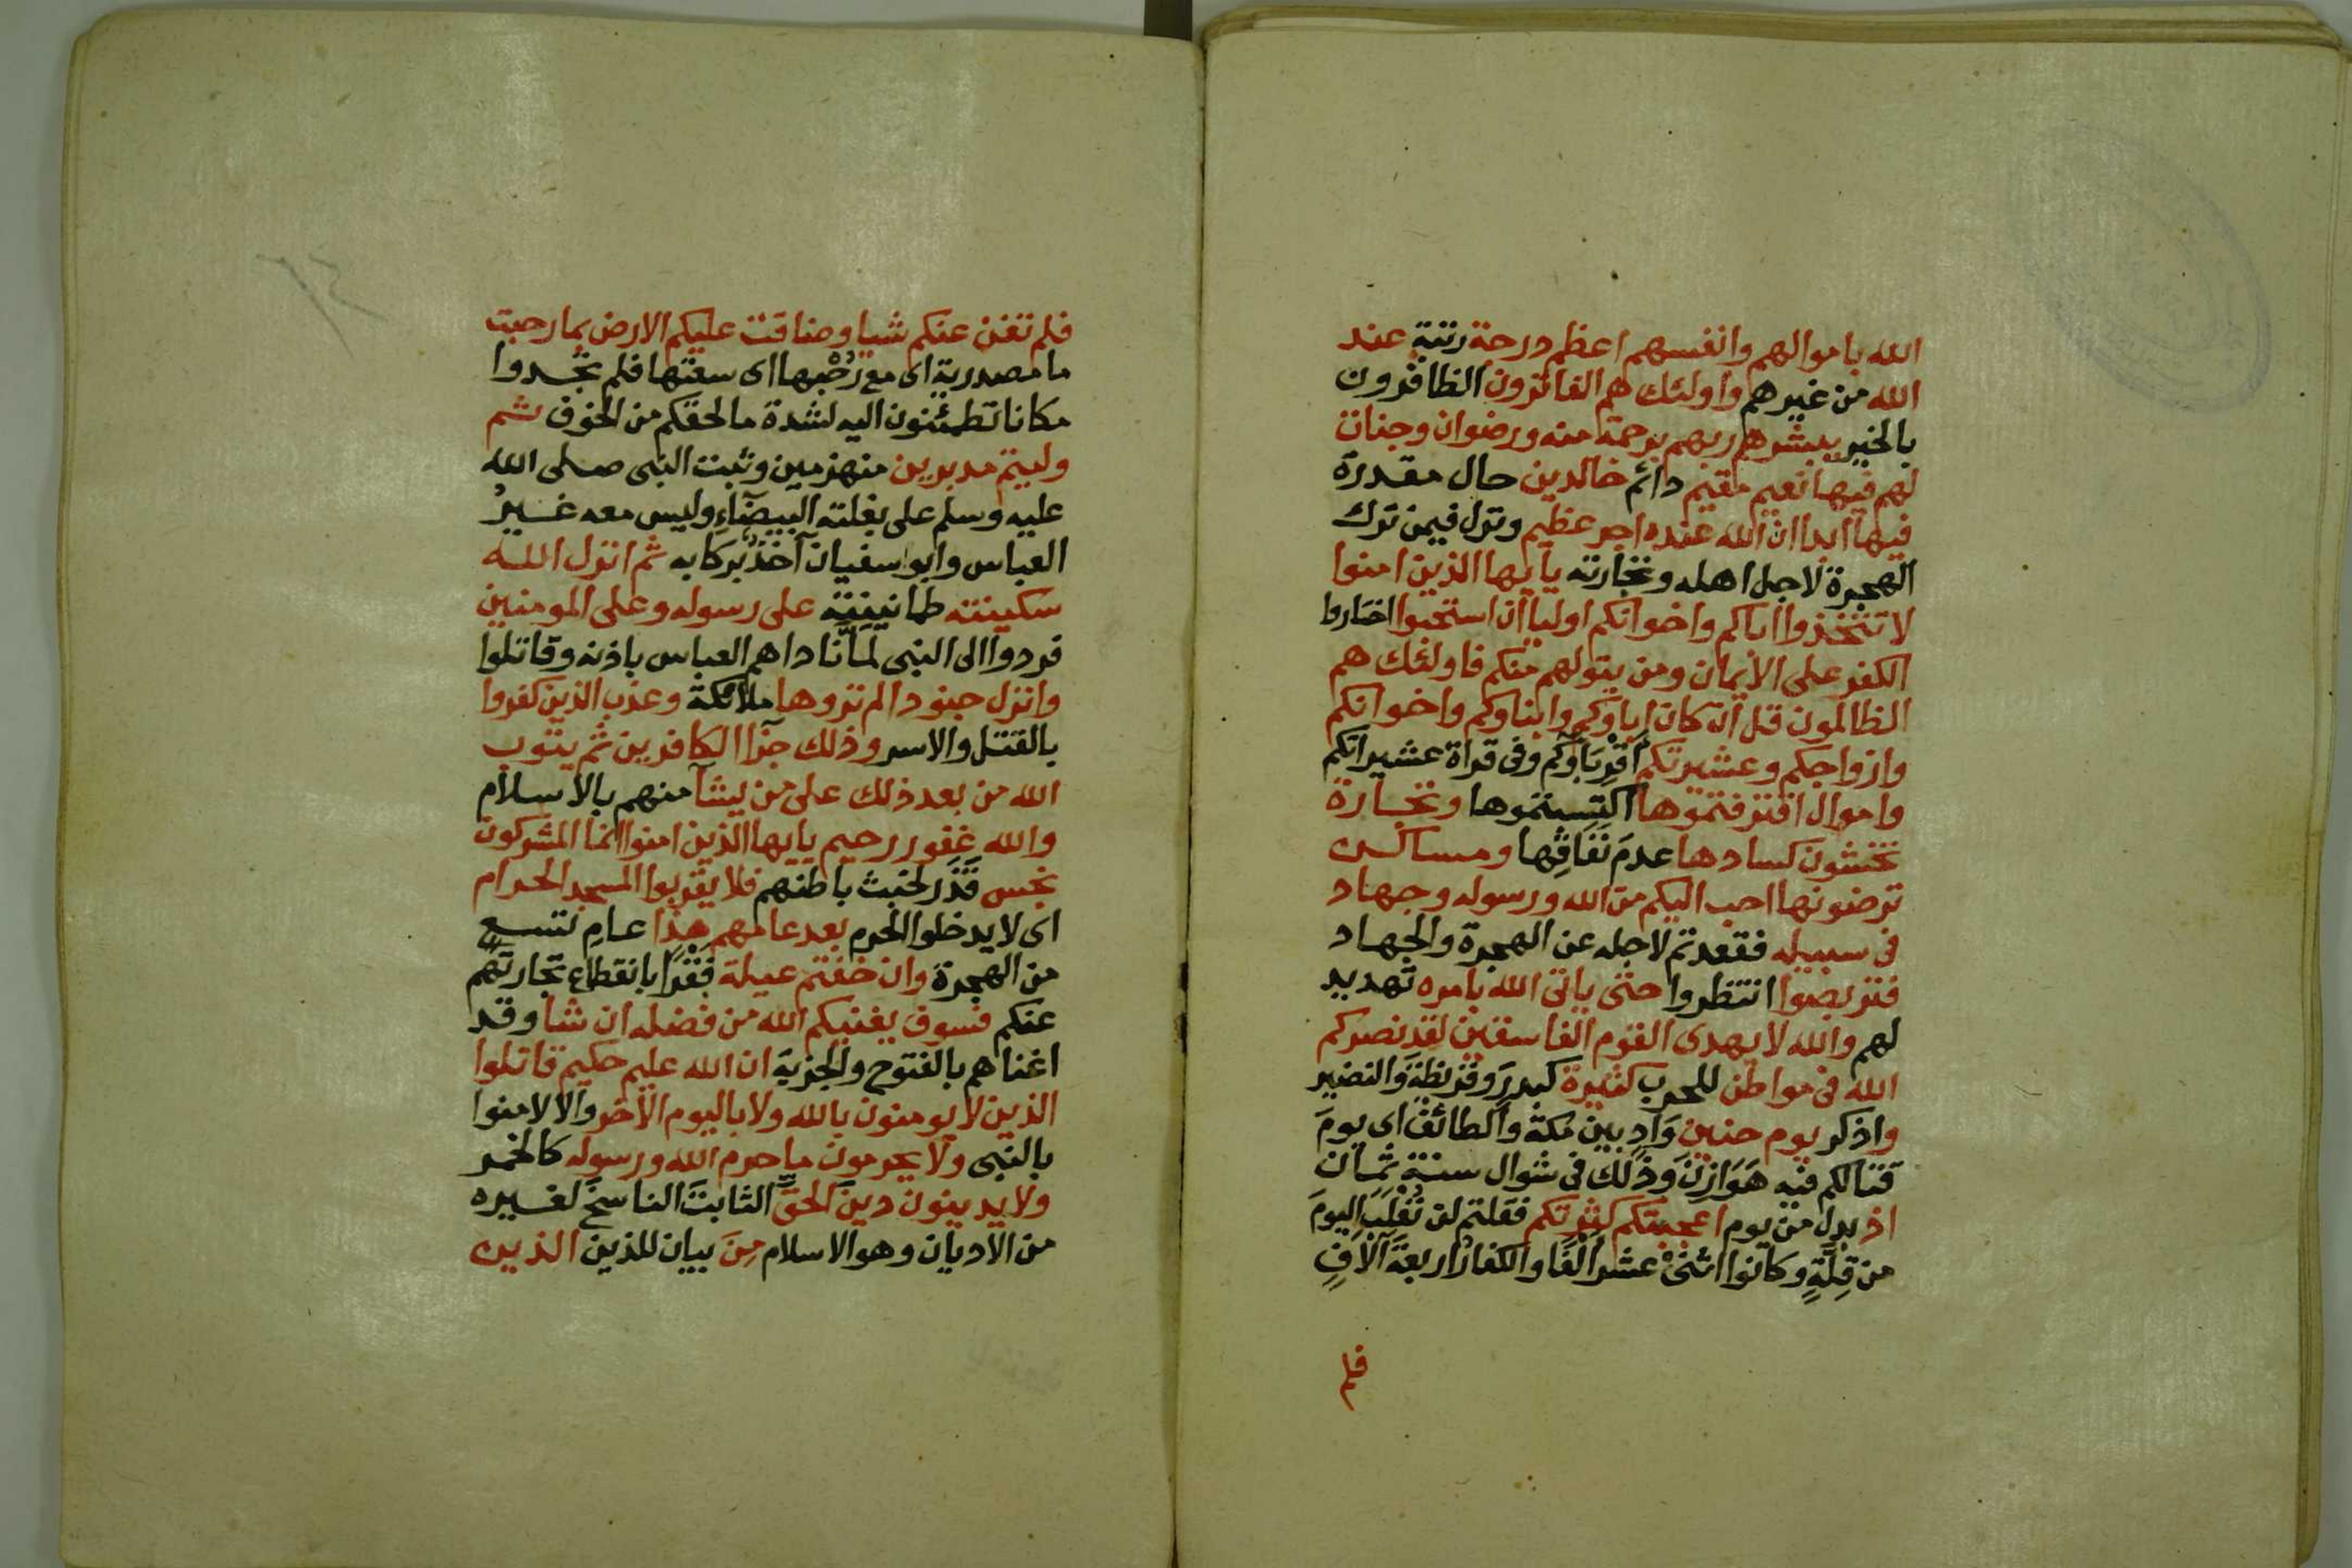 الله باموالهم وانفسهم اعظم درجة رتبة عند
الله من غيرهم واولئك هم الفائزون الظافرون
بالخير يبشرهم ربهم برحمة منه ورضوان وجنات
لهم فيها نعيم مقيم دائم خالدين حال مقدرة
فيها ابدا ان الله عنده اجر عظيم ونزل فيمن ترك
الهجرة لاجل اهله وتجارته يايها الذين امنوا
لا تتخذوا اباكم واخوانكم اوليا ان استحبوا اختاروا
الكفر على الايمان ومن يتولهم منكم فاولئك هم
الظالمون قل ان كان اباوكم وابناوكم واخوانكم
وازواجكم وعشيرتكم اَقْرِبَاؤكم وفى قراة عشيراتكم
واموال اقترفتموها اكتسبتموها وتجارة
تخشون كسادها عدمَ نَفَاقِها ومساكن
ترضونها احب اليكم من الله ورسوله وجهاد
فى سبيله فقعدتم لاجله عن الهجرة والجهاد
فتربصوا انتظروا حتى ياتى الله بامره تهديد
لهم والله لا يهدى القوم الفاسقين لقد نصركم
الله فى مواطن للحرب كثيرة كبدرَ وقريظةَ والنضير
واذكر يوم حنين وَادٍ بين مكة والطائف اى يومَ
قتالكم فيه هَوَازِنَ وذلك فى شوال سنة ثمان
اذ بدل من يوم اعجبتكم كثرتكم فقلتم لن نُغْلَبَ اليومَ
من قِلَّةٍ وكانوا اثنىْ عشر اَلْفًا والكفارُ اربعةَ آلافٍ
فلم
فلم تغن عنكم شيا وضاقت عليكم الارض بما رحبت
ما مصدرية اى مع رُحْبِها اى سعتها فلم تجدوا
مكانا تطمئنون اليه لشدة ما لحقكم من الخوف ثم
وليتم مدبرين منهزمين وثبت النبى صلى الله
عليه وسلم على بغلته البيضآءِ وليس معه غيرُ
العباس وابو سفيان آخذٌ بركابه ثم انزل الله
سكينته طمانينته على رسوله وعلى المومنين
فردوا الى النبى لَمَّا نَاداهم العباس باذنه وقاتلوا
وانزل جنودا لم تروها ملائكة وعذب الذين كفروا
بالقتل والاسر وذلك جزا الكافرين ثم يتوب
الله من بعد ذلك على من يشآ منهم بالاسلام
والله غفور رحيم يايها الذين امنوا انما المشركون
نجس قَذَر لخبث باطنهم فلا يقربوا المسجد الحرام
اى لا يدخلوا الحرم بعد عامهم هذا عامِ تسع
من الهجرة وان خفتم عيلة فَقْرًا بانقطاع تجارتهم
عنكم فسوف يغنيكم الله من فضله ان شا وقد
اغناهم بالفتوح والجزية ان الله عليم حكيم قاتلوا
الذين لا يومنون بالله ولا باليوم الآخر والا لامنوا
بالنبى ولا يحرمون ما حرم الله ورسوله كالخمر
ولا يدينون دينَ الحقِّ الثابتَ الناسخَ لغيره
من الاديان وهو الاسلام مِنَ بيان للذين الذين